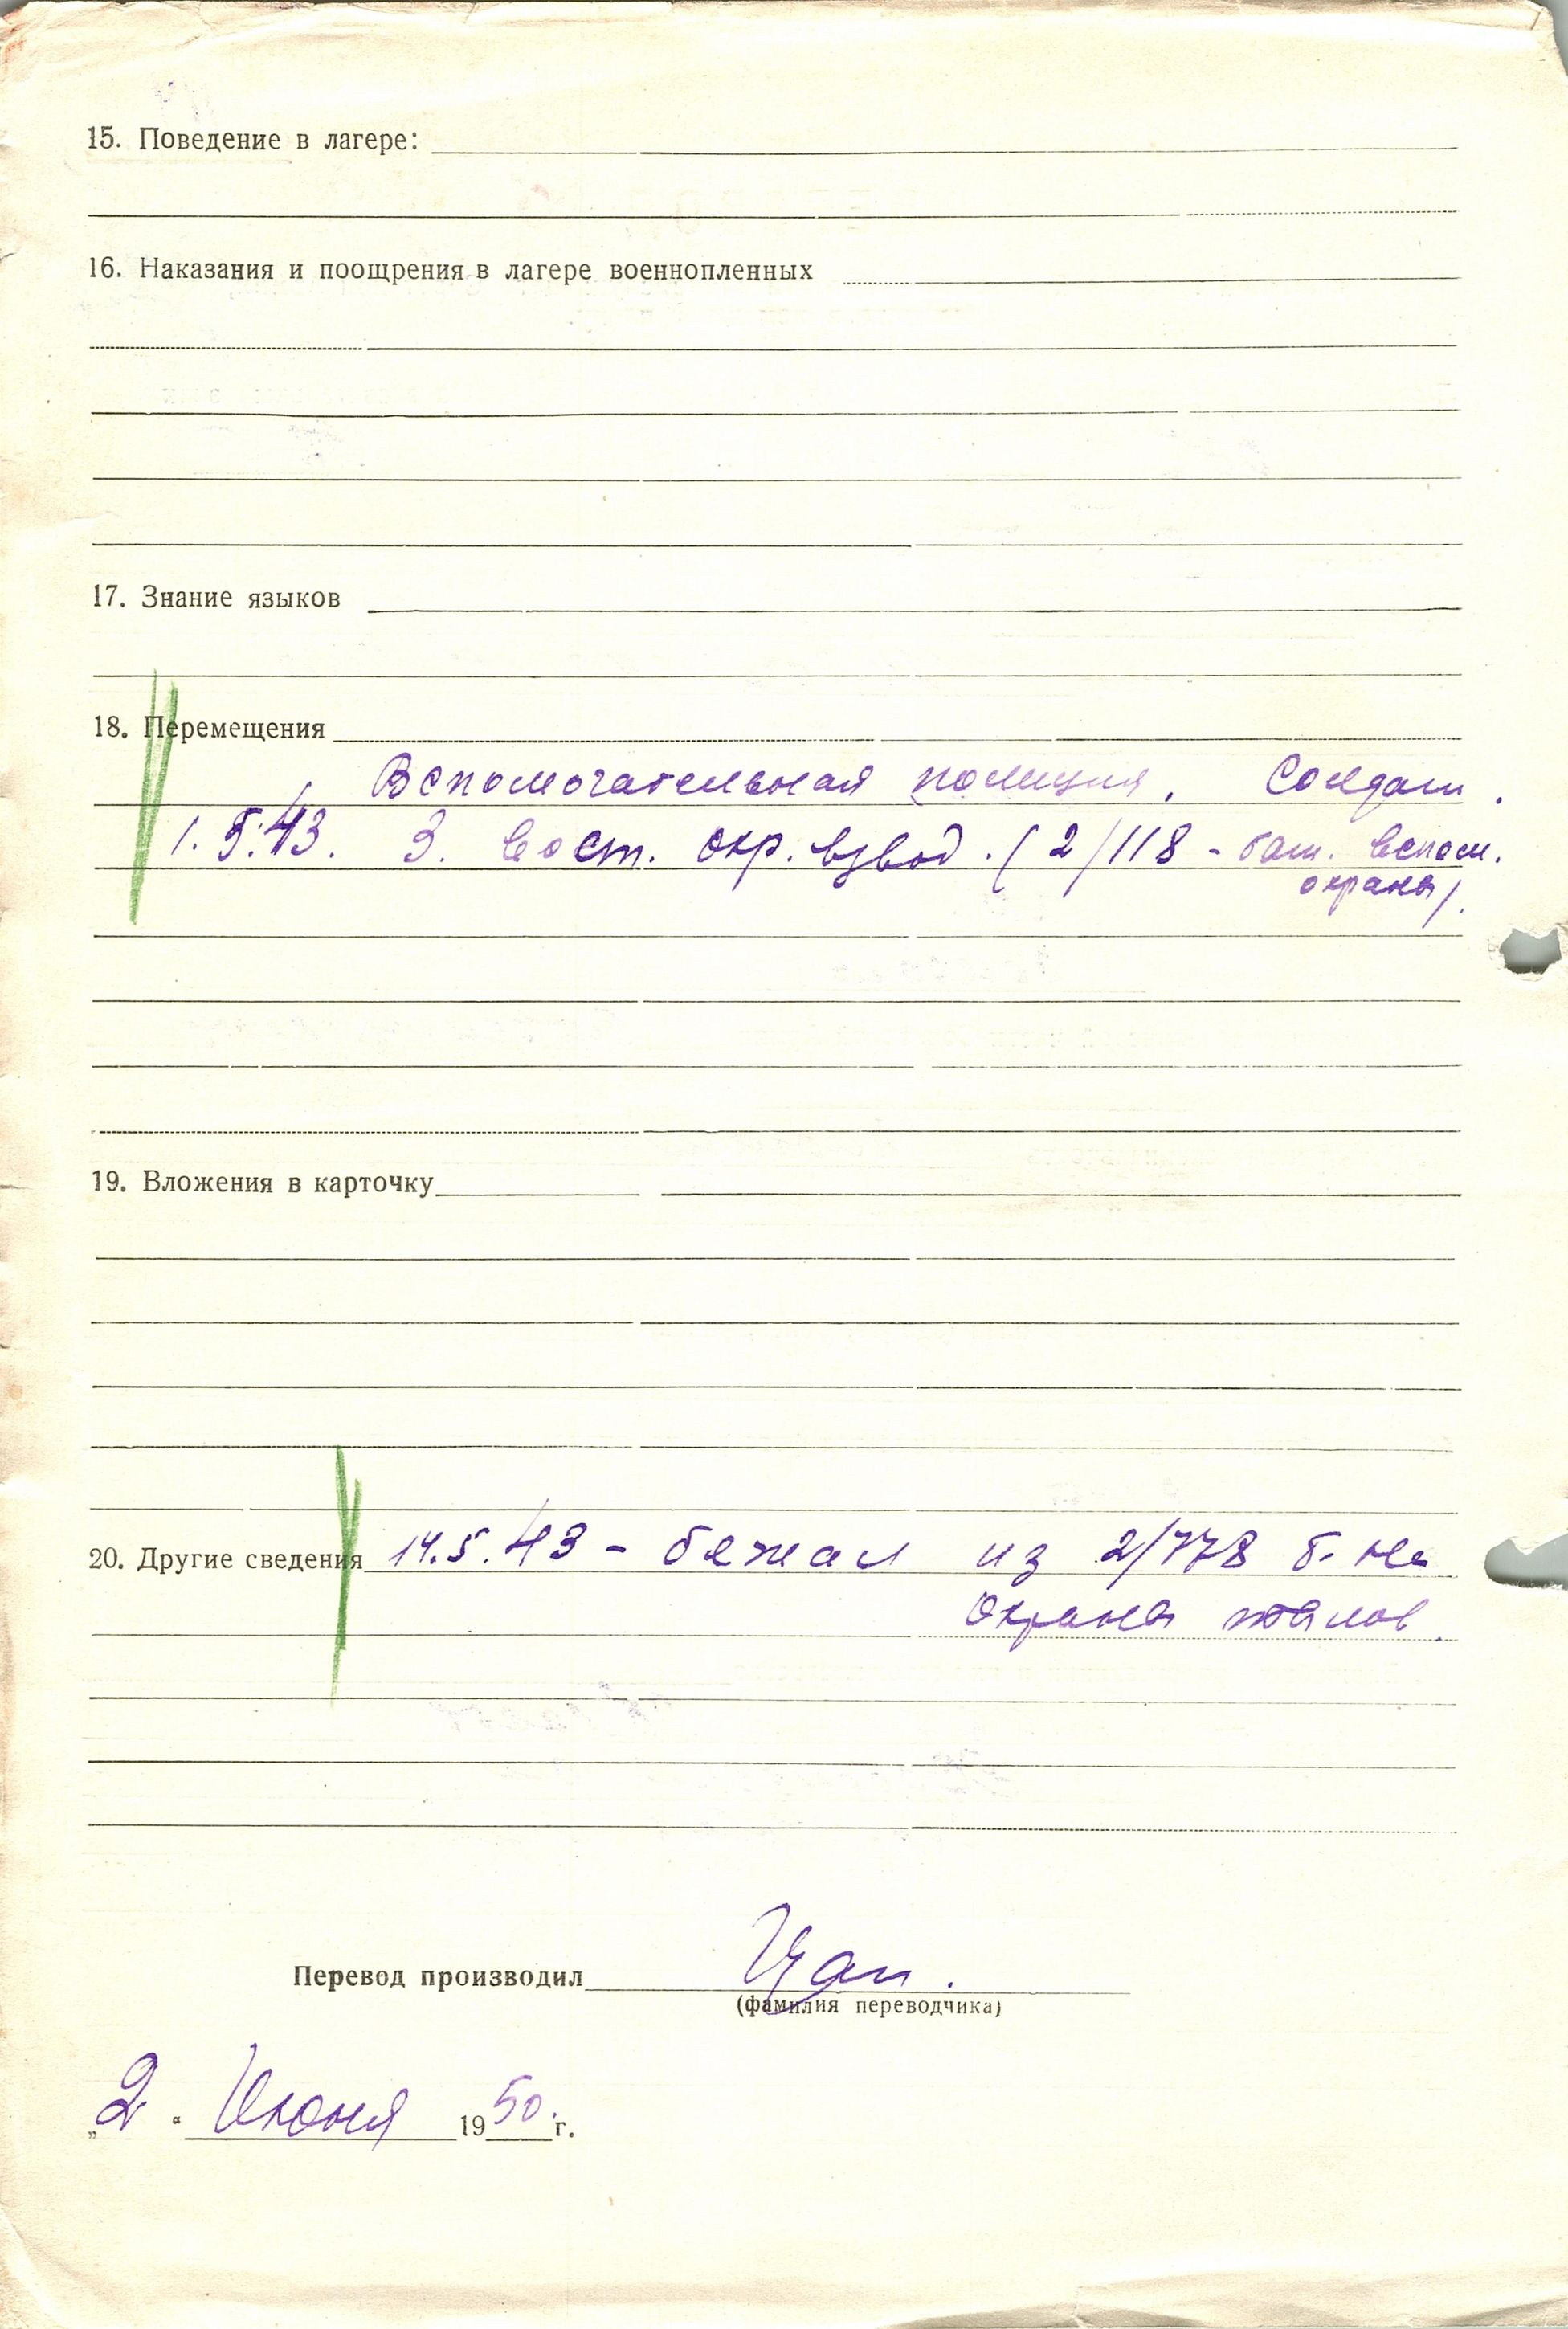 15. Поведение в лагере:
16. Наказания и поощрения в лагере военнопленных
17. Знание языков
18. Перемещения
Вспомогательная полиция. Солдат.
1.5.43. 3. вост. охр. взвод. (2/118 - бат. вспом.
охраны).
19. Вложения в карточку
20. Другие сведения 14.5.43 - бежал из 2/778 б-на
охраны тылов.
Перевод производил
(фамилия переводчика)
„2“ Июня 1950 г.